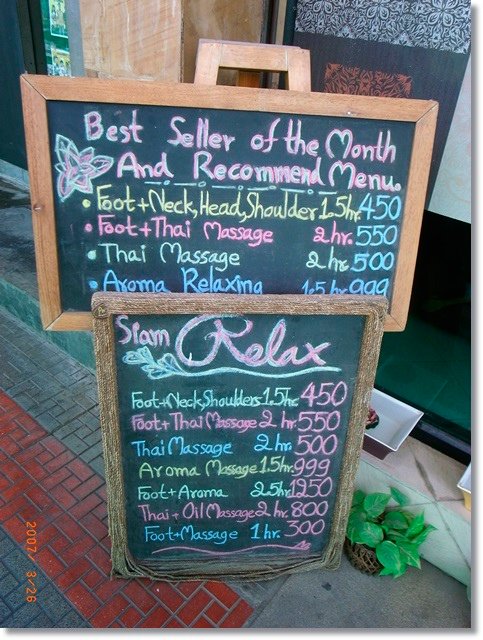 Best Seller of the Month
And Recommend Menu.
• Foot+Neck,Head,Shoulder 1.5hr. 450
• Foot+Thai Massage 2 hr. 550
• Thai Massage 2 hr. 500
• Aroma Relaxing 1.5 hr. 999
Siam Relax
Foot+Neck,Shoulders 1.5hr. 450
Foot+Thai Massage 2 hr. 550
Thai Massage 2 hr. 500
Aroma Massage 1.5hr. 999
Foot+Aroma 2.5hr. 1250
Thai+Oil Massage 2 hr. 800
Foot+Massage 1 hr. 300
2007 8/26